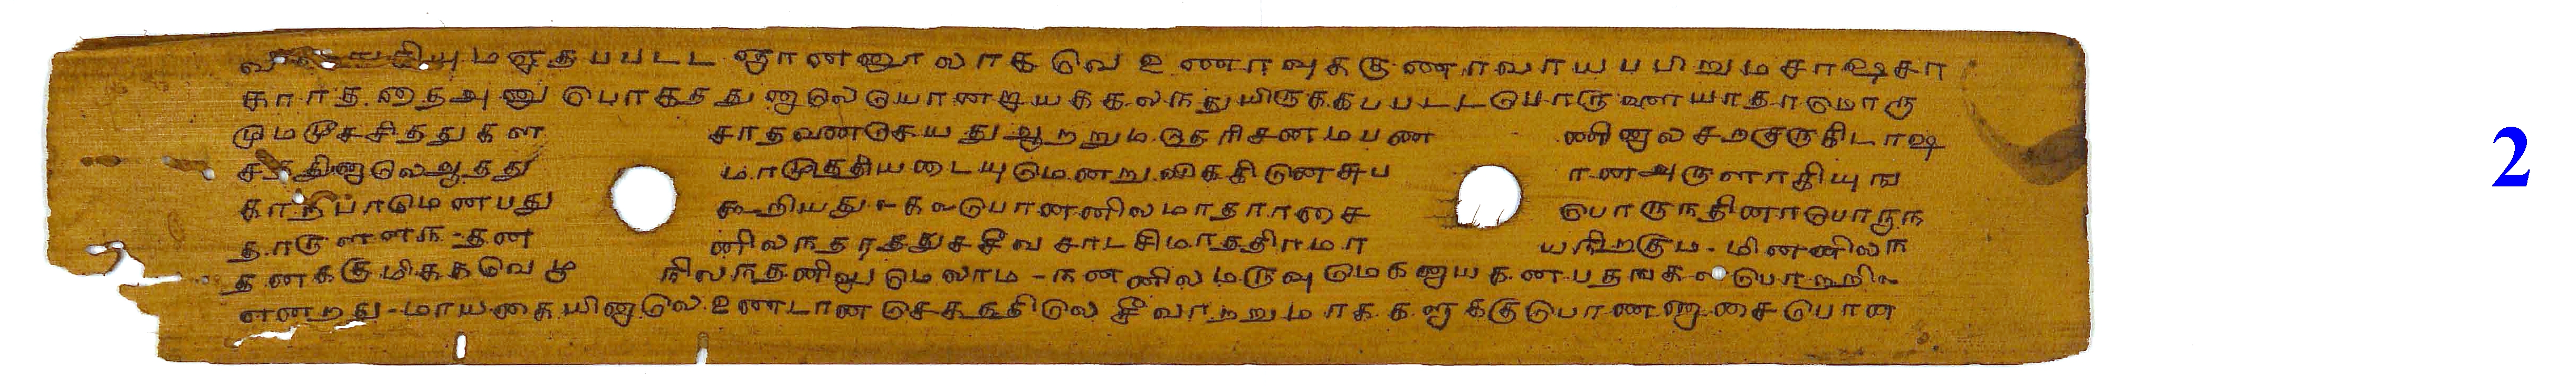 யுமநதபபடட ஞானனூலாகவெ உணாவுககுணாவாயபபிறுமசாஷசா
காரத.தைஅனுபொகதது ஐயககலநதுயிருககபபடடபொருளையாதாமொரு
மூமமூசசிததுகள சாதவணசெயதுஆறறுமதெரிசனமபண ணினாலசறகுருகிடாஷ
சததினாலெஆதது மாமுததியடையுமெனறு.விககினெசுப ான அருளாகியுந
காநபாமெனபது கூறியது-கலபொனனிலமாதராசை பொருநதினாபொருந
தாருளளந-தன னிலநதரததுசசீவசாடசிமாததிரமா யநிறகும-மினனிலந
தனககுமிககவெழு நிலநதனிலுமெலாம-நனனிலமருவுமெகனாயகனபதஙகளபொறறி
எனறது-மாயகையினாலெஉணடானசெகததிலெ சீவாறறுமாககளுக்குபொனனாசைபொன